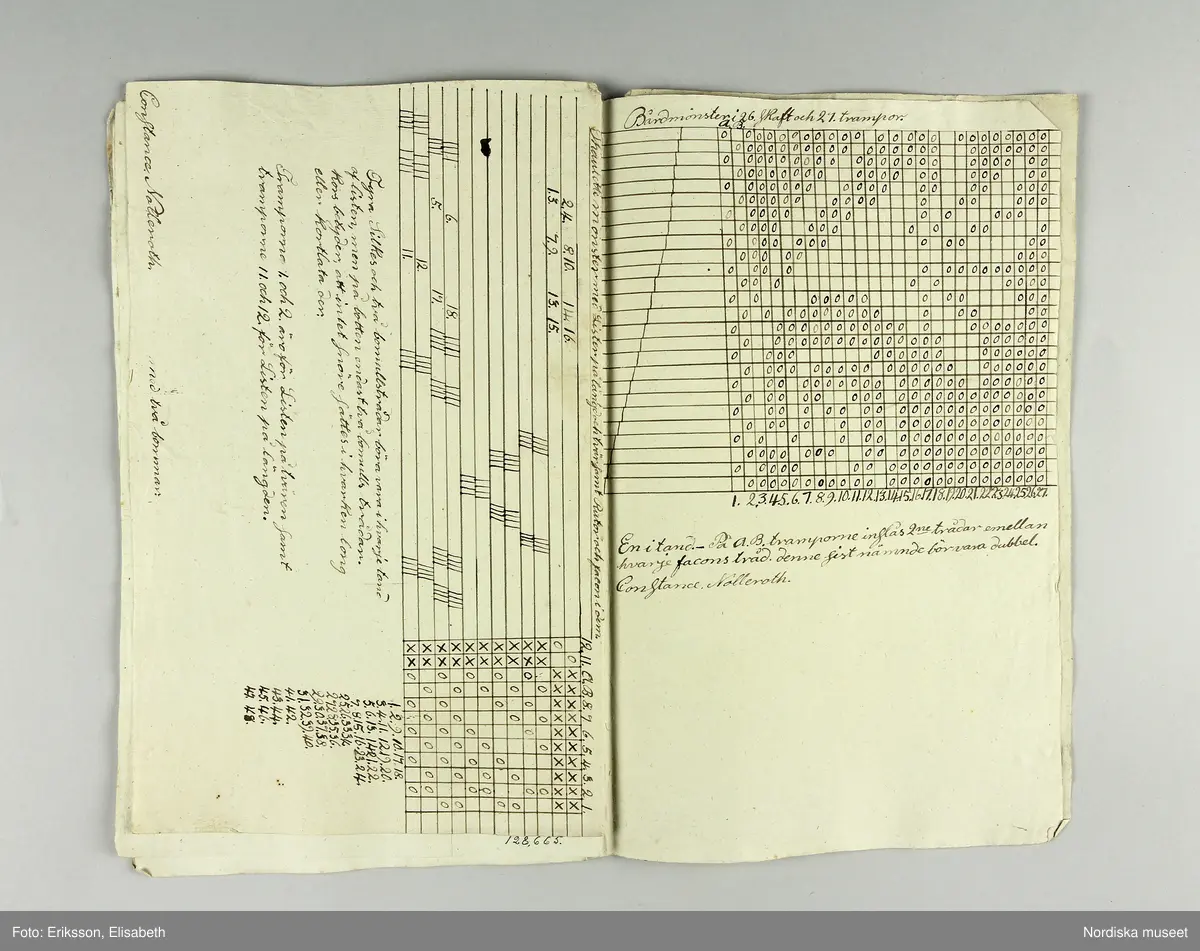 Skaulette mönster med Listen på langen och tvären samt Rutor och facon i dem.
2.4. 8.10. 14.16.
1.3. 7.9. 13.15.
6. 12. 18.
5. 11. 17.
Fyra Silkes och två bomullstrådar böra vara i hvarje tand
af listen, men på botten endast två bomulls trådar.
Kors betyder att intet snöre sättes i hvarken long
eller Kortlata den
Tramporne 1. och 2. äro för Listen på tvären samt
tramporne 11. och 12. för Listen på längden.
Constance Nolleroth. med två bomman.
12. 11. A. B. 8. 7. 6. 5. 4. 3. 2. 1.
1. 2. 9. 10. 17. 18.
3. 4. 11. 12. 19. 20.
5. 6. 13. 14. 21. 22.
7. 8. 15. 16. 23. 24.
25. 26. 33. 34.
27. 28. 35. 36.
29. 30. 37. 38.
31. 32. 39. 40.
41. 42.
43. 44.
45. 46.
47. 48.
128,665.
Bårdmönster i 26. Skaft och 27. trampor.
A. B.
1. 2. 3. 4. 5. 6. 7. 8. 9. 10. 11. 12. 13. 14. 15. 16. 17. 18. 19. 20. 21. 22. 23. 24. 25. 26. 27.
En i tand. – På A. B. tramporne inslås 2ne trådar emellan
hvarje facons tråd. denne sist nämnde bör vara dubbel.
Constance. Nolleroth.
Foto: Eriksson, Elisabeth
Nordiska museet